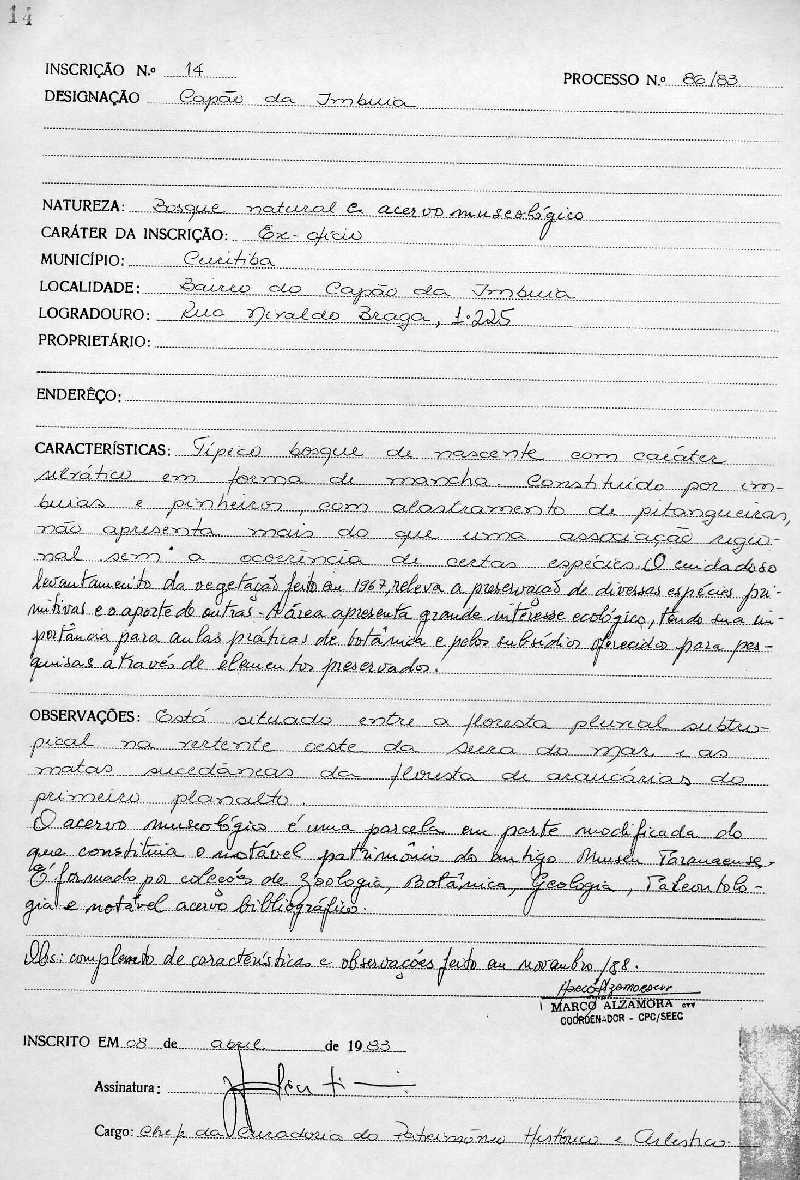 14
INSCRIÇÃO N.º 14
PROCESSO N.º 86/83
DESIGNAÇÃO Capão da Imbuia
NATUREZA: Bosque natural e acervo museológico
CARÁTER DA INSCRIÇÃO: Ex-ofício
MUNICÍPIO: Curitiba
LOCALIDADE: Bairro do Capão da Imbuia
LOGRADOURO: Rua Nivaldo Braga, 1.225
PROPRIETÁRIO:
ENDERÊÇO:
CARACTERÍSTICAS: Típico bosque de nascente com caráter
selvático em forma de mancha. Constituído por im-
buias e pinheiros, com alastramento de pitangueiras,
não apresenta mais do que uma associação regio-
nal sem a ocorrência de certas espécies. O cuidadoso
levantamento da vegetação feito em 1967, releva a preservação de diversas espécies pri-
mitivas e o aporte de outras - A área apresenta grande interesse ecológico, tendo sua im-
portância para aulas práticas de botânica e pelos subsídios oferecidos para pes-
quisas através de elementos preservados.
OBSERVAÇÕES: Está situado entre a floresta pluvial subtro-
pical na vertente oeste da serra do mar e as
matas sucedâneas da floresta de araucárias do
primeiro planalto.
O acervo museológico é uma parcela em parte modificada do
que constituia o notável patrimônio do antigo Museu Paranaense.
É formado por coleções de Zoologia, Botânica, Geologia, Paleontolo-
gia e notável acervo bibliográfico.
Obs: complemento de características e observações feito em novembro/88.
MARCO ALZAMORA
COORDENADOR - CPC/SEEC
INSCRITO EM 08 de abril de 1983
Assinatura:
Cargo: Chefe da Curadoria do Patrimônio Histórico e Artístico.